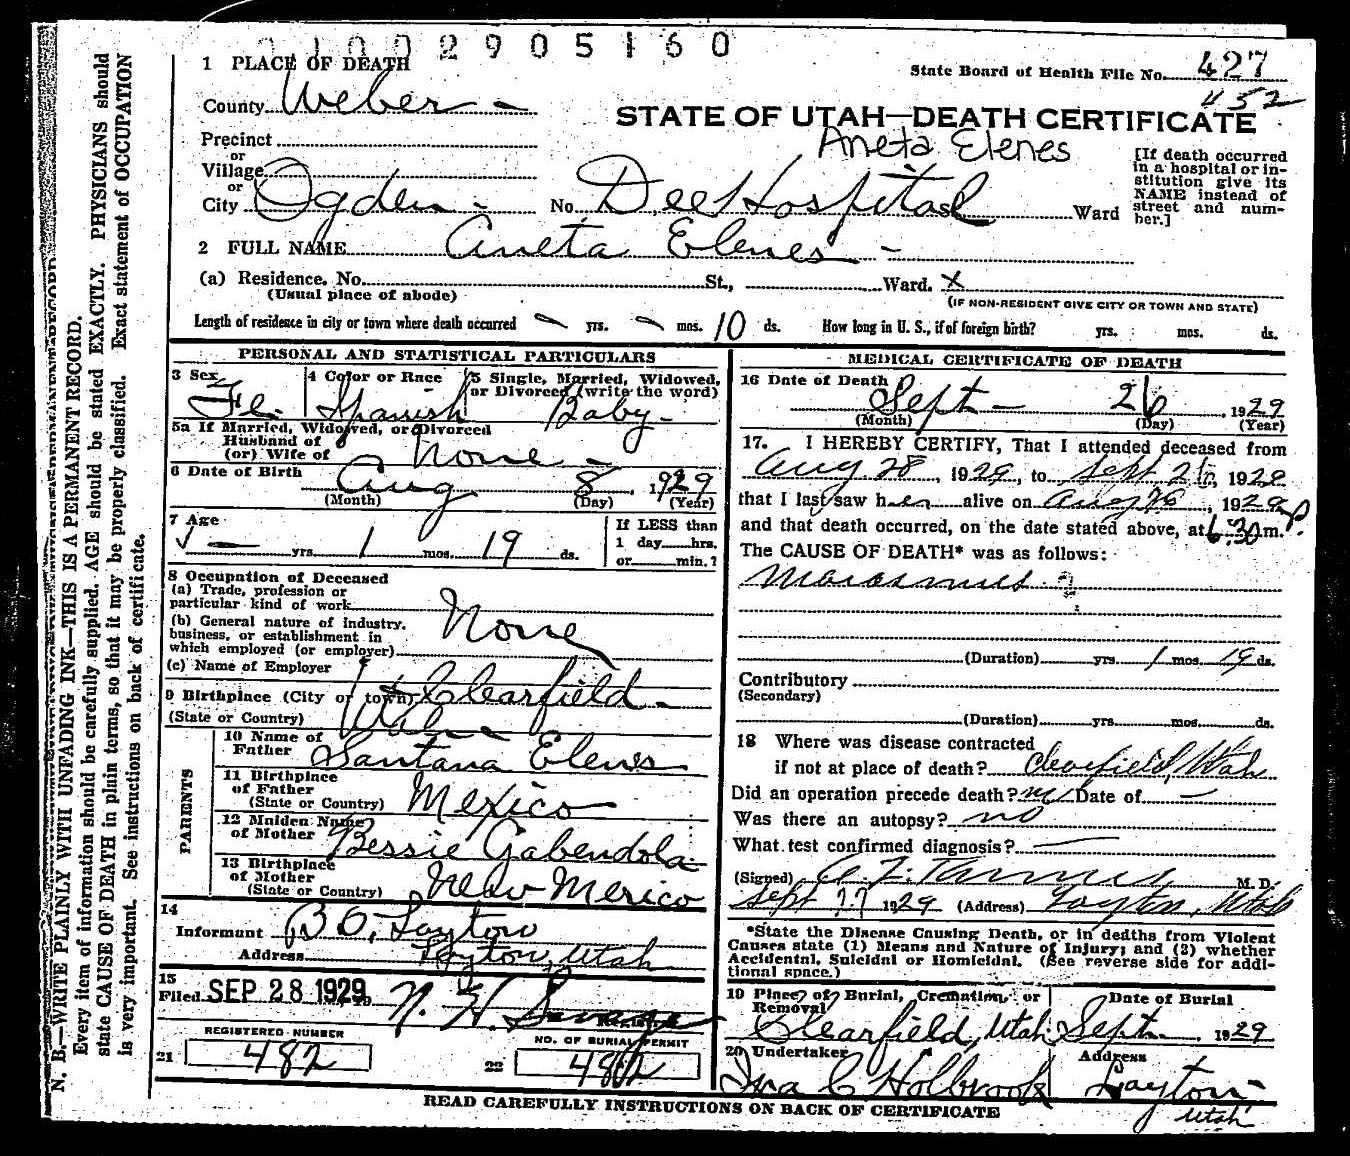 2905160
1 PLACE OF DEATH
State Board of Health File No. 427
452
County Weber -
STATE OF UTAH—DEATH CERTIFICATE
Aneta Elenes
Precinct
or
Village
or
City Ogden - No. Dee Hospital Ward
[If death occurred
in a hospital or in-
stitution give its
NAME instead of
street and num-
ber.]
2 FULL NAME Aneta Elenes -
(a) Residence. No. St., Ward. X
(Usual place of abode)
(IF NON-RESIDENT GIVE CITY OR TOWN AND STATE)
Length of residence in city or town where death occurred - yrs. - mos. 10 ds. How long in U. S., if of foreign birth? yrs. mos. ds.
PERSONAL AND STATISTICAL PARTICULARS
3 Sex 4 Color or Race 5 Single, Married, Widowed,
or Divorced (write the word)
Fe. Spanish Baby -
5a If Married, Widowed, or Divorced
Husband of
(or) Wife of None -
6 Date of Birth
Aug 8, 1929
(Month) (Day) (Year)
7 Age
- yrs. 1 mos. 19 ds.
If LESS than
1 day hrs.
or min.?
8 Occupation of Deceased
(a) Trade, profession or
particular kind of work
(b) General nature of industry,
business, or establishment in
which employed (or employer)
None
(c) Name of Employer
9 Birthplace (City or town) Clearfield -
(State or Country) Utah -
PARENTS
10 Name of
Father Santana Elenes
11 Birthplace
of Father
(State or Country) Mexico
12 Maiden Name
of Mother Bessie Gabendola
13 Birthplace
of Mother
(State or Country) New Mexico
14
Informant B O. Layton
Address Layton, Utah
15
Filed SEP 28 1929 N. H. Savage
REGISTRAR
REGISTERED NUMBER
NO. OF BURIAL PERMIT
21 482
22 482
MEDICAL CERTIFICATE OF DEATH
16 Date of Death
Sept - 26, 1929
(Month) (Day) (Year)
17. I HEREBY CERTIFY, That I attended deceased from
Aug 28, 1929, to Sept 26, 1929
that I last saw her alive on Aug 26, 1929
and that death occurred, on the date stated above, at 6.30 P.m.
The CAUSE OF DEATH* was as follows:
Marasmus ?
(Duration) yrs. 1 mos. 19 ds.
Contributory
(Secondary)
(Duration) yrs. mos. ds.
18 Where was disease contracted
if not at place of death? Clearfield, Utah
Did an operation precede death? no Date of -
Was there an autopsy? no
What test confirmed diagnosis? -
(Signed) M. D.
Sept 27 1929 (Address) Layton, Utah
*State the Disease Causing Death, or in deaths from Violent
Causes state (1) Means and Nature of Injury; and (2) whether
Accidental, Suicidal or Homicidal. (See reverse side for addi-
tional space.)
19 Place of Burial, Cremation, or
Removal
Date of Burial
Clearfield, Utah Sept. 1929
20 Undertaker Address
Ira C Holbrook Layton -
Utah
READ CAREFULLY INSTRUCTIONS ON BACK OF CERTIFICATE
N. B.—WRITE PLAINLY WITH UNFADING INK—THIS IS A PERMANENT RECORD.
Every item of information should be carefully supplied. AGE should be stated EXACTLY. PHYSICIANS should
state CAUSE OF DEATH in plain terms, so that it may be properly classified. Exact statement of OCCUPATION
is very important. See instructions on back of certificate.